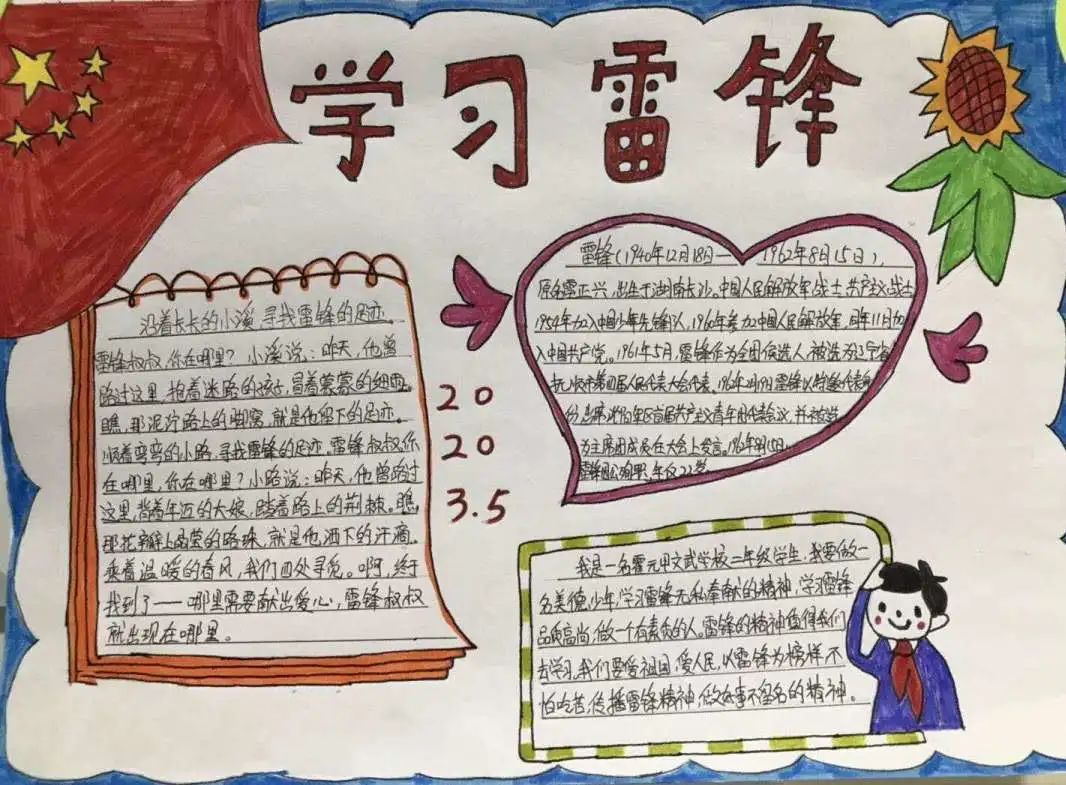 学习雷锋
沿着长长的小溪,寻找雷锋的足迹。
雷锋叔叔,你在哪里?小溪说:昨天,他曾
路过这里,抱着迷路的孩子,冒着蒙蒙的细雨。
瞧,那泥泞路上的脚窝,就是他留下的足迹。
顺着弯弯的小路,寻找雷锋的足迹。雷锋叔叔,你
在哪里,你在哪里?小路说:昨天,他曾路过
这里,背着年迈的大娘,踏着路上的荆棘。瞧,
那花瓣上晶莹的路珠,就是他洒下的汗滴。
乘着温暖的春风,我们四处寻觅。啊,终于
找到了——哪里需要献出爱心,雷锋叔叔
就出现在哪里。
20
20
3.5
雷锋(1940年12月18日——1962年8月15日),
原名雷正兴,出生于湖南长沙。中国人民解放军战士共产主义战士
1954年加入中国少年先锋队,1960年参加中国人民解放军,同年11月加
入中国共产党。1961年5月,雷锋作为全团候选人,被选为辽宁省
抚顺市第四届人民代表大会代表。1962年2月19日雷锋以特邀代表
份,出席沈阳军区首届共产主义青年团代表会议,并被选
为主席团成员在大会上发言。1962年8月15日
雷锋因公殉职,年仅22岁
我是一名霍元甲文武学校二年级学生,我要做一
名美德少年,学习雷锋无私奉献的精神,学习雷锋
品质高尚,做一个有素质的人。雷锋的精神值得我们
去学习,我们要爱祖国,爱人民,以雷锋为榜样不
怕吃苦,传播雷锋精神,做好事不留名的精神。